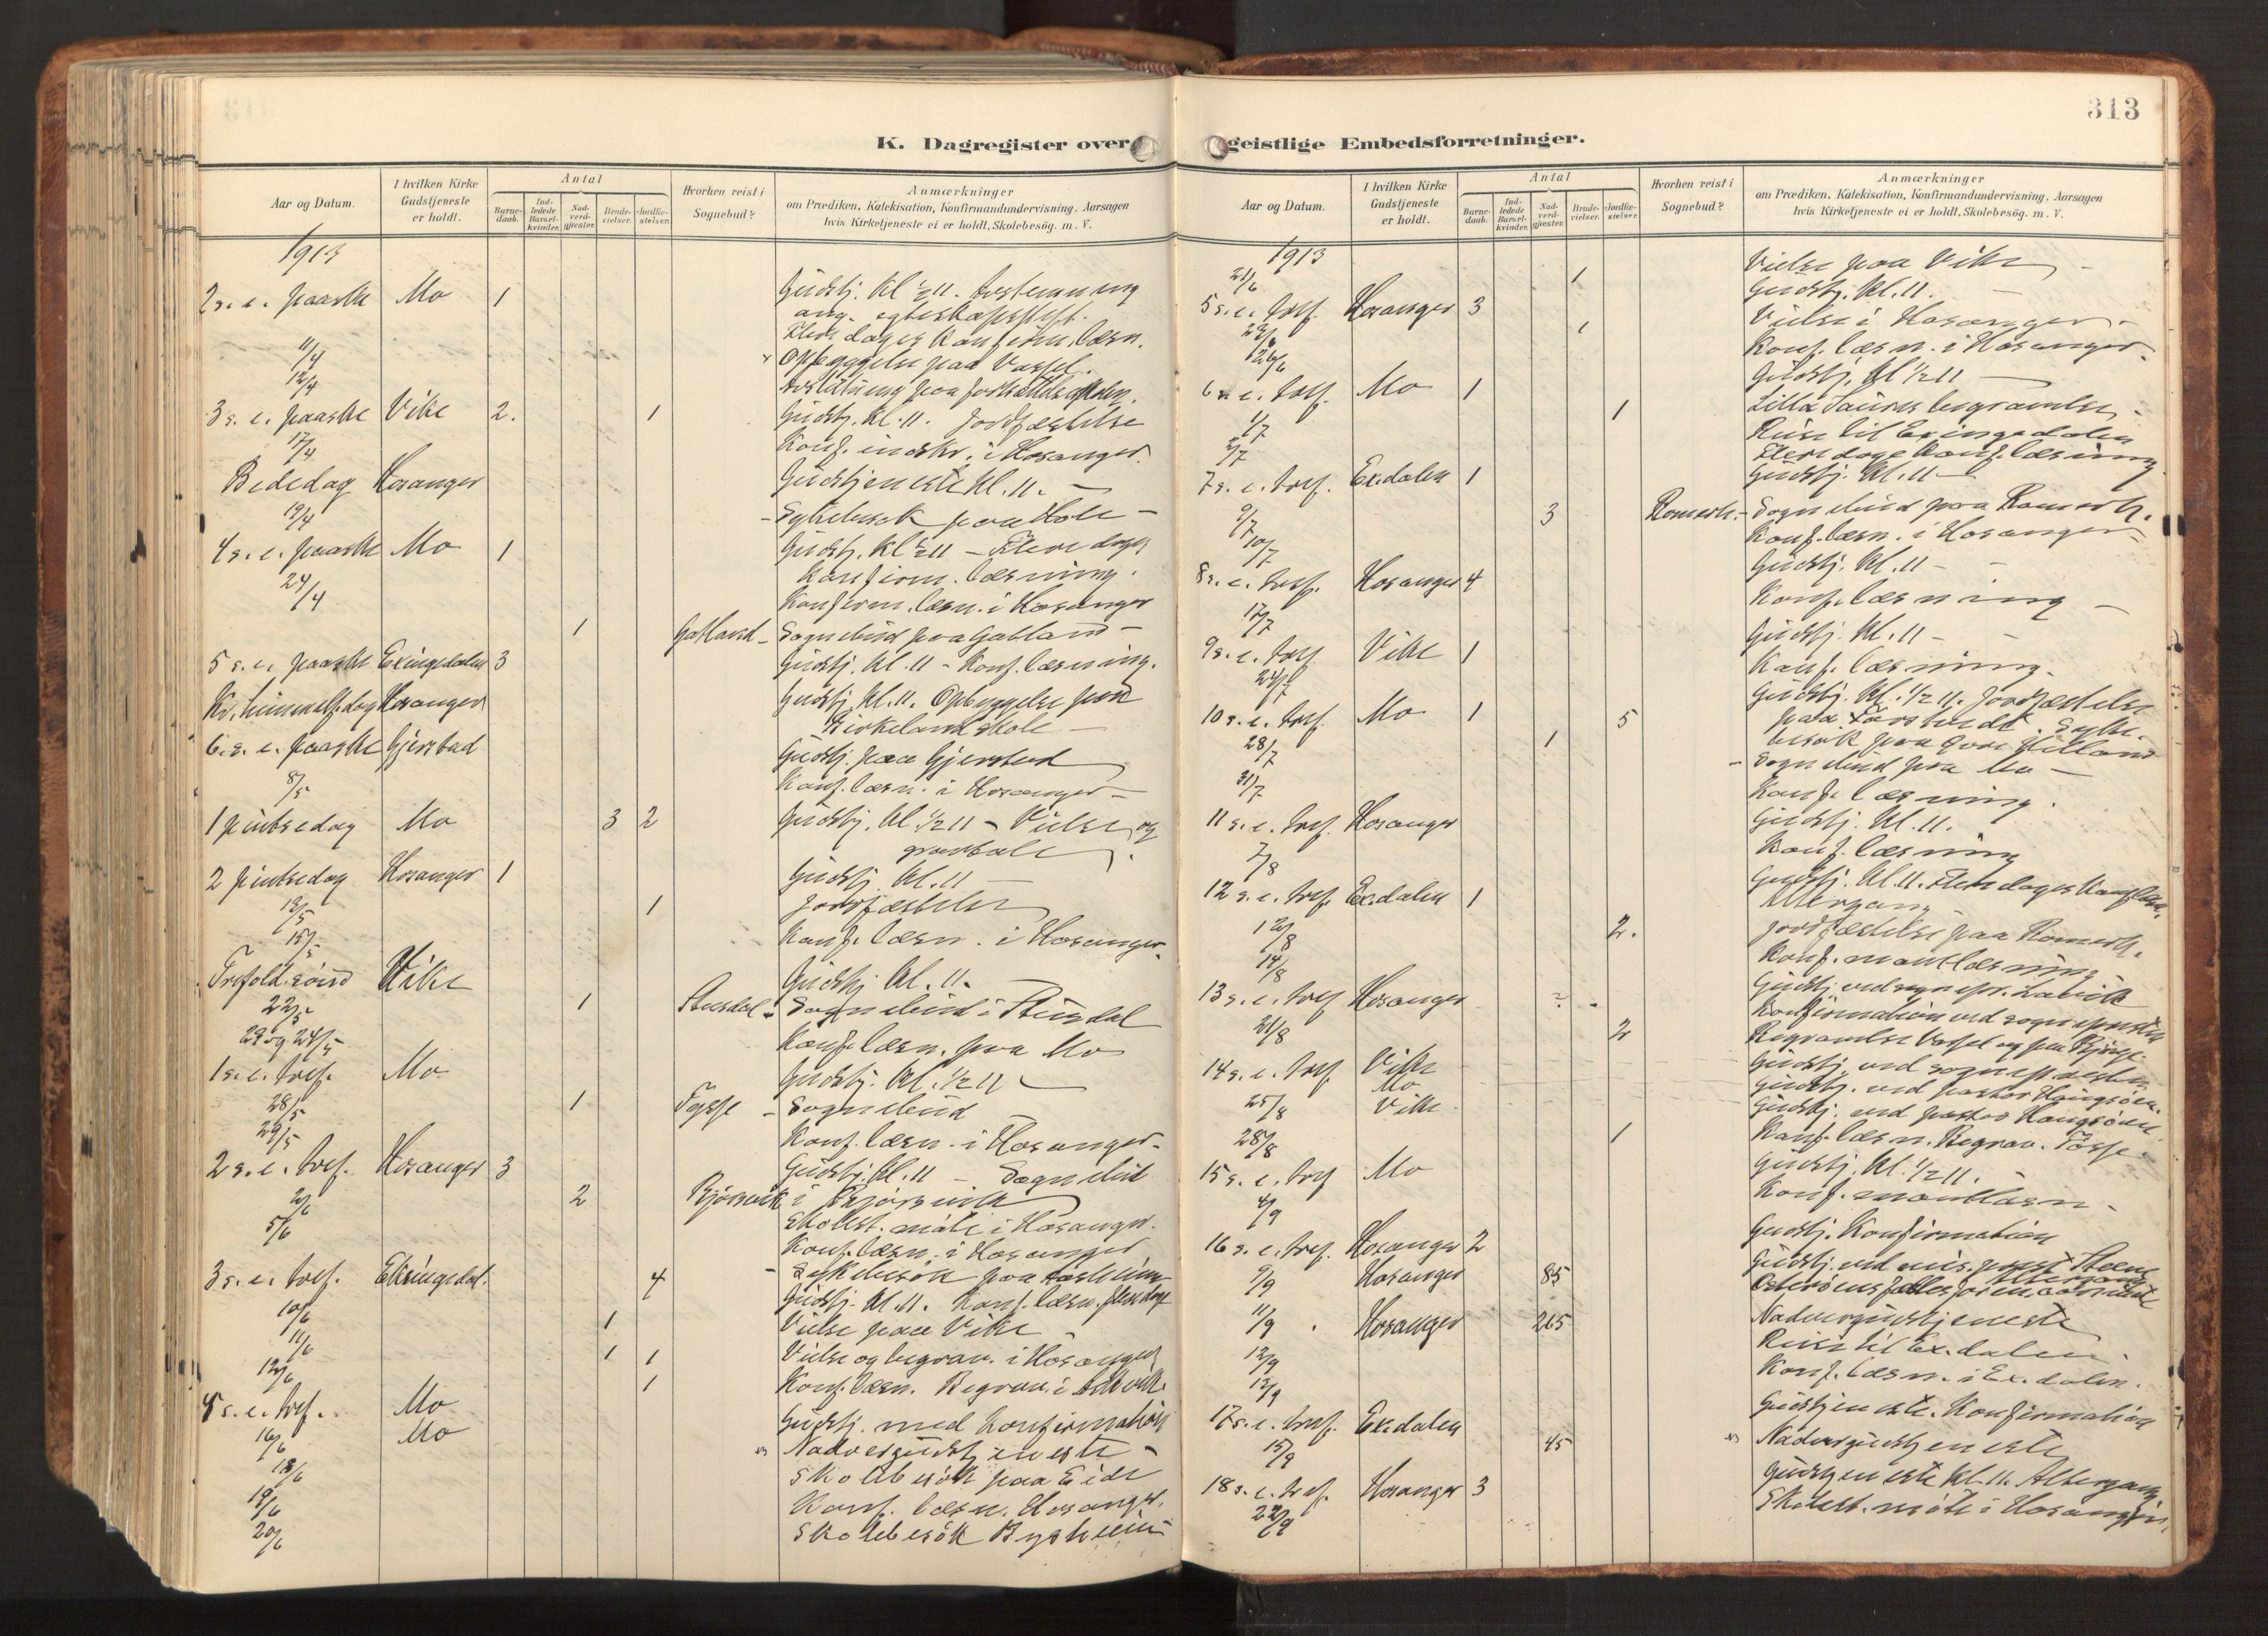 313
K. Dagregister over geistlige Embedsforretninger.
Aar og Datum. I hvilken Kirke Gudstjeneste er holdt. Antal Barnedaab. Indledede Barselkvinder. Nadverdgjæster. Brudevielser. Jordfæstelser. Hvorhen reist i Sognebud? Anmærkninger om Prædiken, Katekisation, Konfirmandundervisning, Aarsagen hvis Kirketjeneste ei er holdt, Skolebesøg. m. V.
1913
2 s. e. paaske Mo 1 Gudstj. kl ½11.
Flere dager konfirm. læsn.
11/4 Opbyggelse paa Vassel.
12/4
3 s. e. paaske Vike 2. 1 Gudstj. kl. 11. Jordfæstelse
17/4 Konf. indskr. i Hosanger.
Bededag Hosanger Gudstjeneste kl. 11. —
19/4 - Sykebesøk paa Hole —
4 s. e. paaske Mo 1 Gudstj. kl ½11 — Flere dager
konfirm. læsning.
24/4 Konfirm. læsn. i Hosanger
1 Gatland - Sognebud paa Gatland —
5 s. e. paaske Exingedalen 3 Gudstj. kl. 11 - Konf. læsning.
Kr. himmelf. dag Hosanger Gudstj. kl. 11. Opbyggelse paa
Birkeland skole —
6. s. e. paaske Gjerstad Gudstj. paa Gjerstad
8/5 Konf. læsn. i Hosanger —
1 pintsedag Mo 3 2 Gudstj. kl. ½11 - Vielse og
2 pintsedag Hosanger 1 Gudstj. kl. 11 —
13/5 1 Jordfæstelse
15/5 Konf. læsn. i Hosanger.
Trefold. sønd Vike Gudstj kl. 11.
22/5 1 Stusdal - Sognebud i Stusdal
23 og 24/5 Konf. læsn. paa Mo
1 s. e. tref. Mo Gudstj. kl. ½11 —
28/5 1 Fosse - Sognebud
29/5 Konf. læsn. i Hosanger -
2 s. e. tref. Hosanger 3 Gudstj. kl. 11 — Sognebud
2/6 2 Bjørsvik i Bjørsvik
5/6 Skolest. møte i Hosanger.
Konf. læsn. i Hosanger
- Sykebesøk paa
3 s. e. tref. Eksingedal. 4 Gudstj. kl. 11. Konf. læsn. flere dage
10/6 1 Vielse paa Vike
11/6 1 1 Vielse og begrav. i Hosanger
12/6 1 Konf. læsn. Begrav. i
4 s. e. tref. Mo Gudstj. med konfirmation
16/6 Mo Nadvergudstjeneste -
18/6 Skolebesøk paa Eide
19/6 Konf. læsn. Hosanger.
20/6 Skolebesøk Bysheim
Aar og Datum. I hvilken Kirke Gudstjeneste er holdt. Antal Barnedaab. Indledede Barselkvinder. Nadverdgjæster. Brudevielser. Jordfæstelser. Hvorhen reist i Sognebud? Anmærkninger om Prædiken, Katekisation, Konfirmandundervisning, Aarsagen hvis Kirketjeneste ei er holdt, Skolebesøg. m. V.
1913
21/6 1 Vielse paa Vike —
5 s. e. tref. Hosanger 3 Gudstj. kl. 11. —
1 Vielse i Hosanger -
26/6 Konf. læsn. i Hosanger.
6 s. e. tref. Mo 1 Gudstj. kl ½11 —
1/7 1 begravelse -
2/7 Reise til Exingedalen
Flere dage konf. læsning
7 s. e. tref. Ex.dalen 1 Gudstj. kl. 11 —
9/7 3 Romark. - Sognebud paa Romark.
10/7 Konf. læsn. i Hosanger —
8 s. e. tref. Hosanger 4 Gudstj. kl. 11 — -
17/7 Konf. læsning —
9 s. e. tref Vike 1 Gudstj. kl. 11 - —
24/7 Konf. læsning.
10 s. e. tref. Mo 1 5 Gudstj. kl. ½11. Jordfæstelse
28/7 1 - Sognebud paa Mo —
31/7 Konf. læsning.
11 s. e. tref. Hosanger Gudstj. kl. 11.
7/8 Konf. læsning
12 s. e. tref. Ex.dalen 1 Gudstj. kl. 11. Flere dager konf læsn.
Altergang
12/8 2. Jordfæstelse paa Romark.
14/8 Konf. mantlæsning
13 s. e. tref Hosanger ? Gudstj. ved sognepr.
Konfirmation ved sognepresten
21/8 2 Begravelse Vassel og paa
14 s. e. tref Vike Gudstj. ved sognepresten
Mo Gudstj. ved pastor Haugsøen.
25/8 Vike Gudstj. ved pastor Haugsøen
28/8 1 Konf. læsn. Begrav. Fosse.
15 s. e. tref Mo Gudstj. kl. ½11. -
4/9 Konf.
16 s. e. tref. Hosanger 2 Gudstj. Konfirmation
9/9 Hosanger 85 Gudstj. ved mis. prest
Altergang
11/9 Hosanger 265 Nadvergudstjeneste
12/9 Reise til Ex.dalen.
13/9 Konf. læsn. i Ex.dalen.
17 s. e. tref. Ex.dalen Gudstjeneste. Konfirmation
15/9 45 Nadvergudstjeneste
18 s. e. tref. Hosanger 3 Gudstjeneste kl. 11. Altergang
22/9 Skolest. møte i Hosanger.